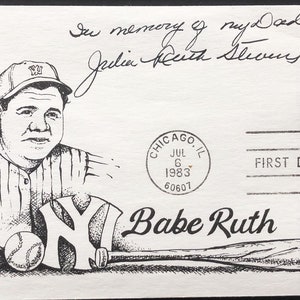 In memory of my Dad
Julia Ruth Stevens
CHICAGO, IL
JUL
6
1983
60607
FIRST D
NY
Babe Ruth